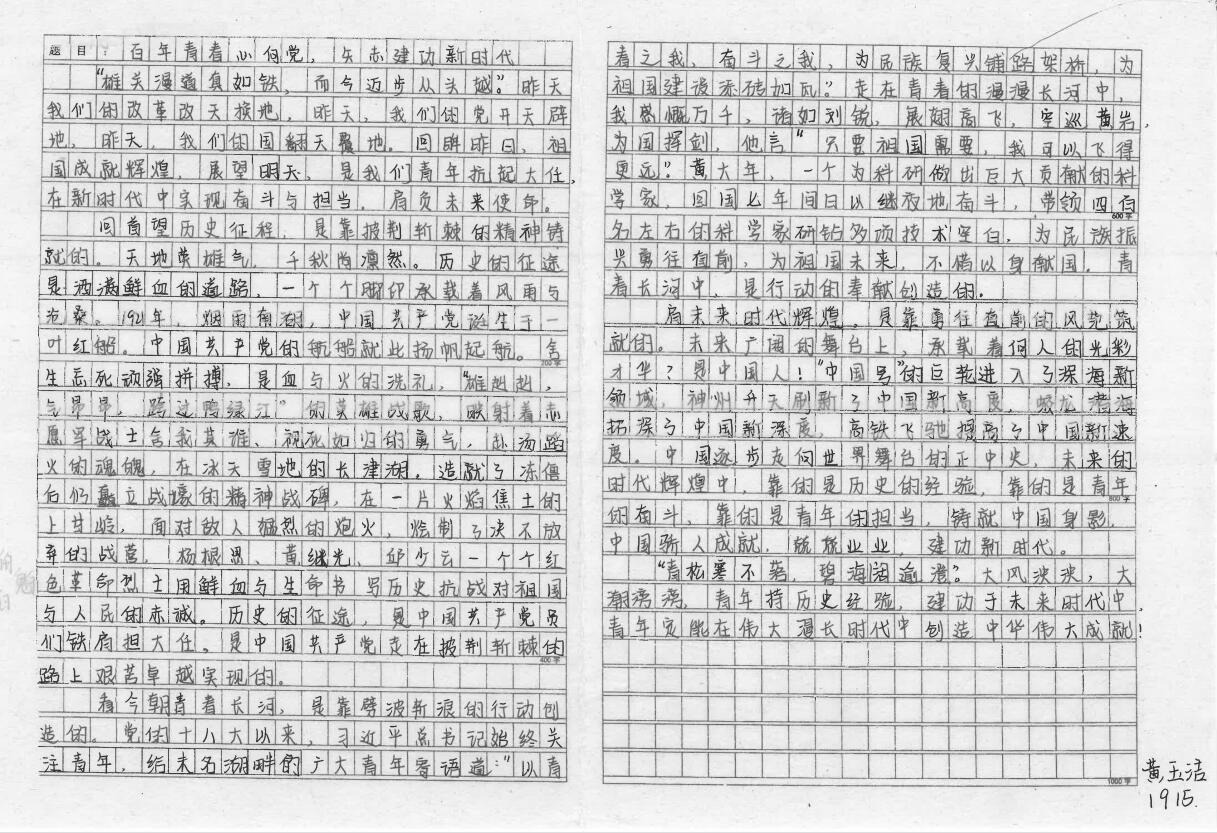 题目：百年青春心向党，矢志建功新时代
“雄关漫道真如铁，而今迈步从头越。”昨天
我们的改革改天换地，昨天，我们的党开天辟
地，昨天，我们的国翻天覆地。回眸昨日，祖
国成就辉煌，展望明天，是我们青年抗起大任，
在新时代中实现奋斗与担当，肩负未来使命。
回首望历史征程，是靠披荆斩棘的精神铸
就的。天地英雄气，千秋尚凛然。历史的征途
是洒满鲜血的道路，一个个脚印承载着风雨与
沧桑。1921年，烟雨南湖，中国共产党诞生于一
叶红船。中国共产党的航船就此扬帆起航。舍
生忘死顽强拼搏，是血与火的洗礼，“雄赳赳，
气昂昂，跨过鸭绿江”的英雄战歌，映射着志
愿军战士舍我其谁、视死如归的勇气，赴汤蹈
火的魂魄，在冰天雪地的长津湖，造就了冻僵
后仍矗立战壕的精神战碑，在一片火焰焦土的
上甘岭，面对敌人猛烈的炮火，绘制了决不放
弃的战营，杨根思、黄继光、邱少云一个个红
色革命烈士用鲜血与生命书写历史抗战对祖国
与人民的赤诚。历史的征途，是中国共产党员
们铁肩担大任，是中国共产党走在披荆斩棘的
400字
路上艰苦卓越实现的。
看今朝青春长河，是靠劈波斩浪的行动创
造的。党的十八大以来，习近平总书记始终关
注青年，给未名湖畔的广大青年寄语道：“以青
春之我，奋斗之我，为民族复兴铺路架桥，为
祖国建设添砖加瓦。”走在青春的漫漫长河中，
我感慨万千，诸如刘锐，展翅高飞，空巡黄岩，
为国挥剑，他言“只要祖国需要，我可以飞得
更远”。黄大年，一个为科研做出巨大贡献的科
学家，回国七年间日以继夜地奋斗，带领四百
600字
名左右的科学家研钻多项技术空白，为民族振
兴勇往直前，为祖国未来，不惜以身献国。青
春长河中，是行动的奉献创造的。
局未来时代辉煌，是靠勇往直前的风范筑
就的。未来广阔的舞台上，承载着何人的光彩
才华？是中国人！“中国号”的巨轮进入了深海新
领域，神州升天刷新了中国新高度，蛟龙潜海
拓深了中国新深度，高铁飞驰提高了中国新速
度。中国逐步走向世界舞台的正中央，未来的
时代辉煌中，靠的是历史的经验，靠的是青年
800字
的奋斗，靠的是青年的担当，铸就中国身影，
中国骄人成就，兢兢业业，建功新时代。
“青松寒不落，碧海阔逾澄。”大风泱泱，大
潮滂滂，青年持历史经验，建功于未来时代中，
青年定能在伟大漫长时代中创造中华伟大成就！
1000字
黄玉洁
1915.